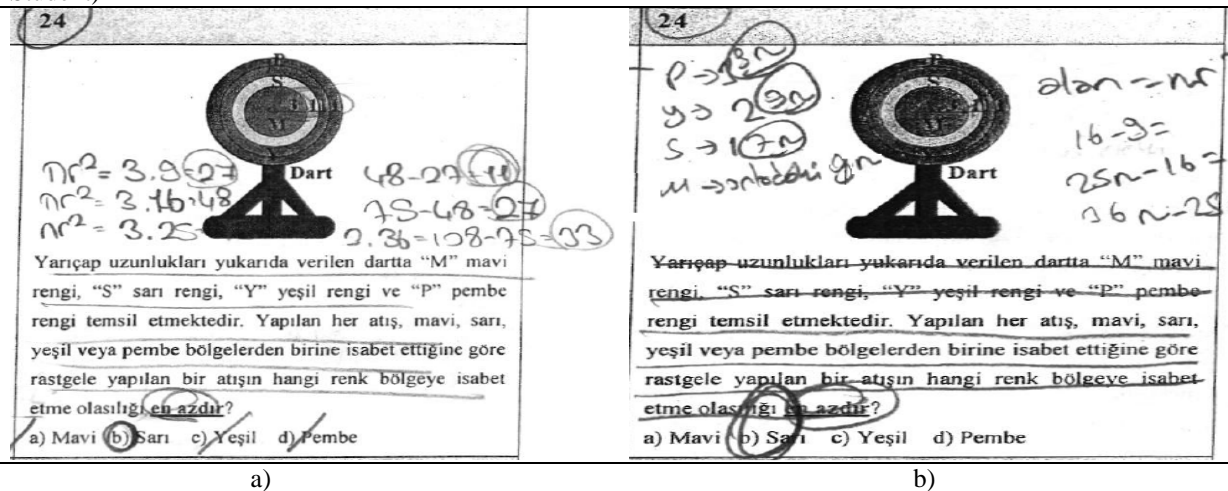 24
P
S
M
Dart
πr² = 3.9=27
πr² = 3.16=48
πr² = 3.25=
48-27=
75-48=27
3.36=108-75=33
Yarıçap uzunlukları yukarıda verilen dartta “M” mavi
rengi, “S” sarı rengi, “Y” yeşil rengi ve “P” pembe
rengi temsil etmektedir. Yapılan her atış, mavi, sarı,
yeşil veya pembe bölgelerden birine isabet ettiğine göre
rastgele yapılan bir atışın hangi renk bölgeye isabet
etme olasılığı en azdır?
a) Mavi b) Sarı c) Yeşil d) Pembe
a)
24
P →
y →
S →
M → ortadaki 9π
alan = πr
16-9=
25π-16=
36π-25
Dart
Yarıçap uzunlukları yukarıda verilen dartta “M” mavi
rengi, “S” sarı rengi, “Y” yeşil rengi ve “P” pembe
rengi temsil etmektedir. Yapılan her atış, mavi, sarı,
yeşil veya pembe bölgelerden birine isabet ettiğine göre
rastgele yapılan bir atışın hangi renk bölgeye isabet
etme olasılığı en azdır?
a) Mavi b) Sarı c) Yeşil d) Pembe
b)